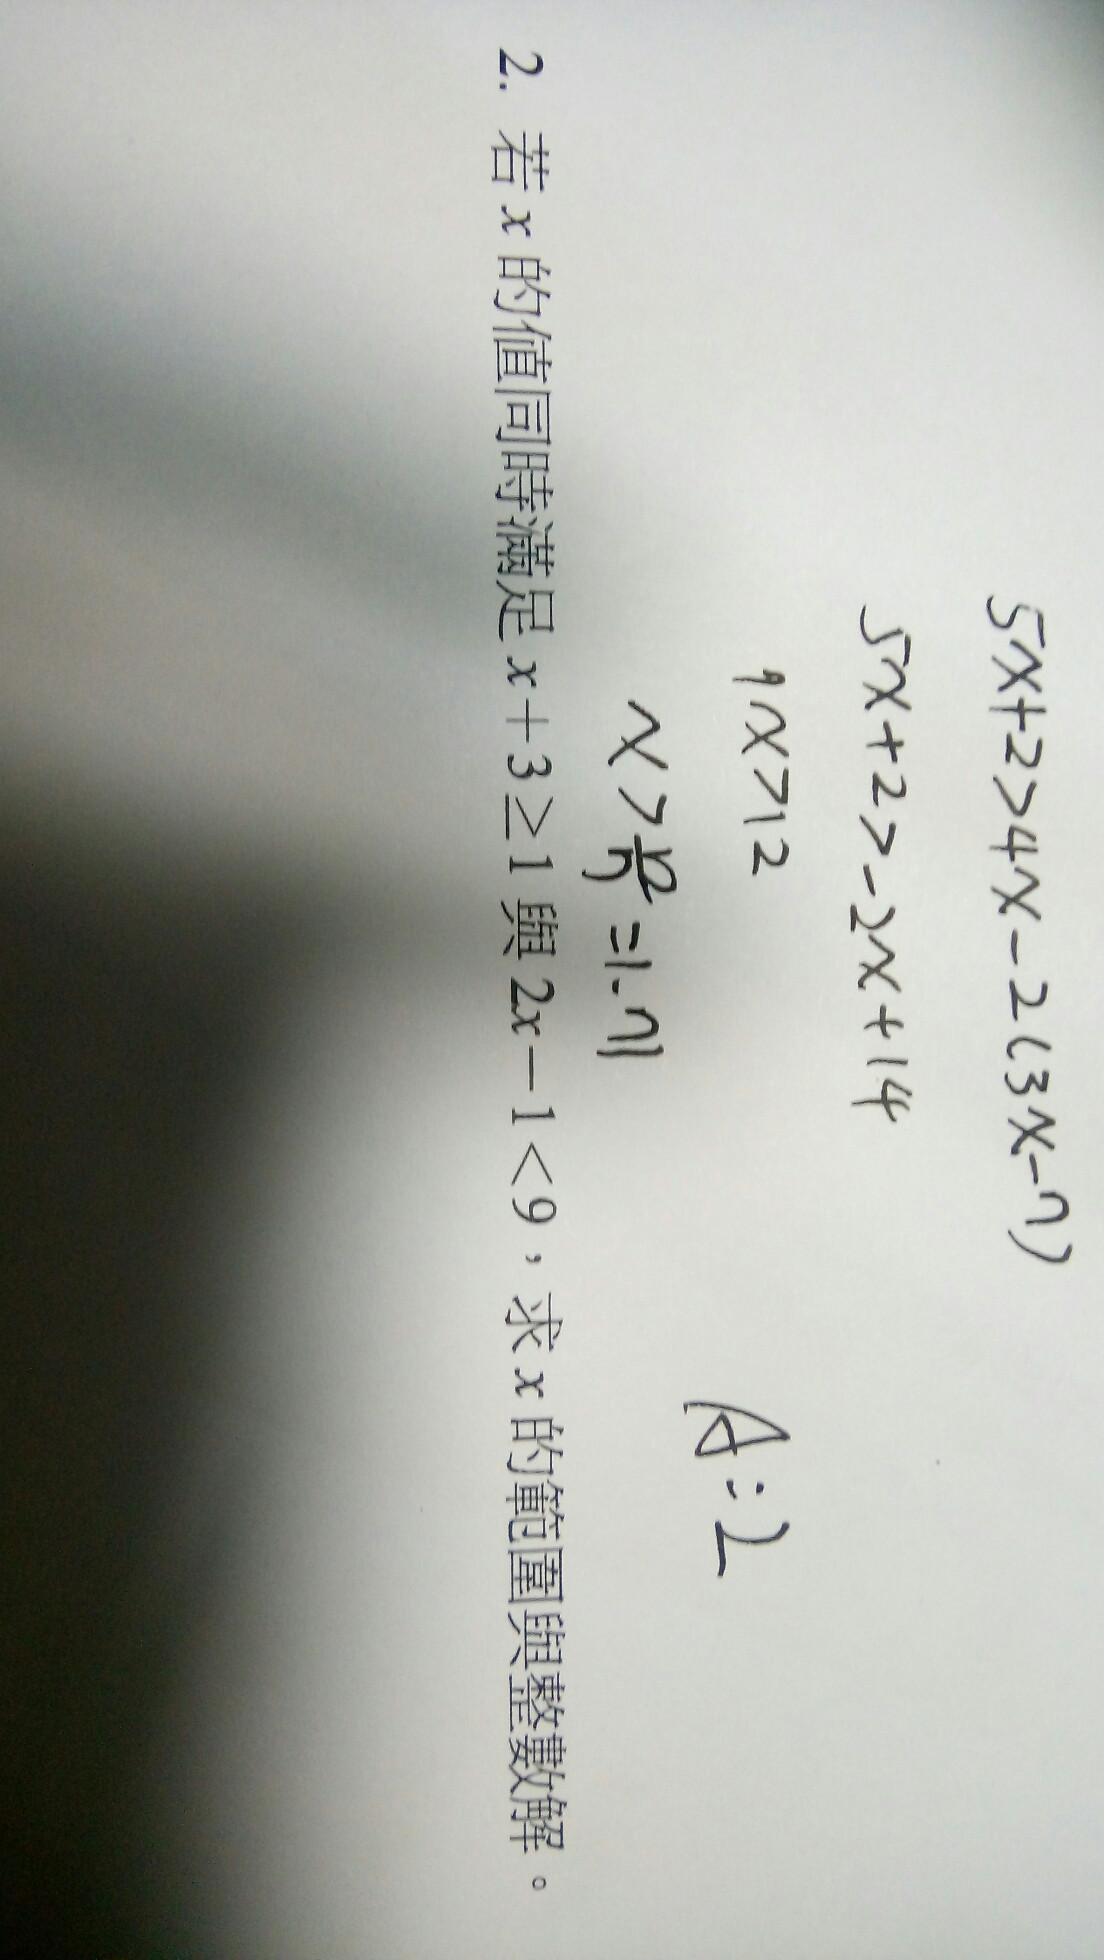 5x+2>4x-2(3x-7)
5x+2>-2x+14
7x>12
x>12/7=1.71
A:2
2. 若 x 的值同時滿足 x+3≥1 與 2x-1<9，求 x 的範圍與整數解。